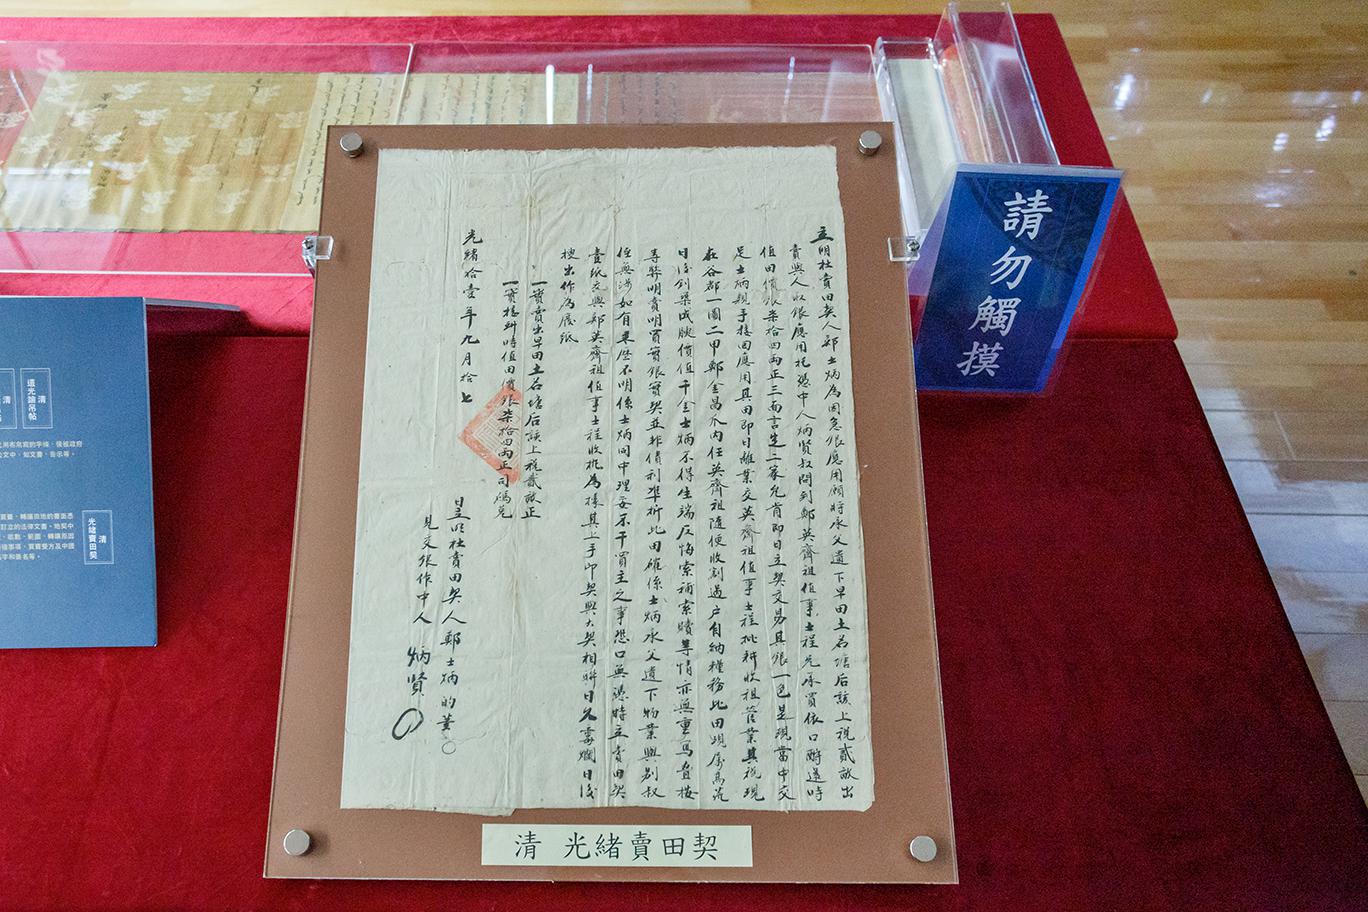 立明杜賣田契人鄭士炳為因急銀應用願將承父遺下早田土名塘后該上稅貳畝出
賣與人收銀應用托憑中人炳賢叔問到鄭英齊祖值事士程兄承買依口酧還時
值田價銀柒拾四兩正三面言定二家允肯即日立契交易其銀一色足現當中交
足士炳親手接回應用其田即日離業交英齊祖值事士程批耕收租管業其稅現
在谷都一圖二甲鄭金昌爪內任英齊祖隨便收割過户自納糧務此田現屬高荒
日後創築成腴價值千金士炳不得生端反悔索補索贖等情亦無重寫疊按
等弊明賣明買實銀實契並非債利準折此田確係士炳承父遺下物業與別叔
侄無涉如有來歷不明係士炳同中理妥不干買主之事恐口無憑特立賣田契
壹紙交與鄭英齊祖值事士程收執為據其上手印契與大契相聯日久霉爛日後
搜出作為廢紙
一實賣出早田土名塘后該上稅貳畝正
一實接料時值田價銀柒拾四兩正司碼兌
光緒拾壹年九月拾七
日立明杜賣田契人鄭士炳的筆
見交銀作中人 炳賢
清 光緒賣田契
請勿觸摸
清
道光諭吊帖
清
光緒賣田契